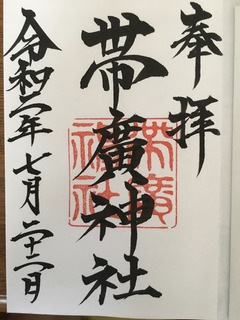 奉拝
帯廣神社
令和二年七月二十二日